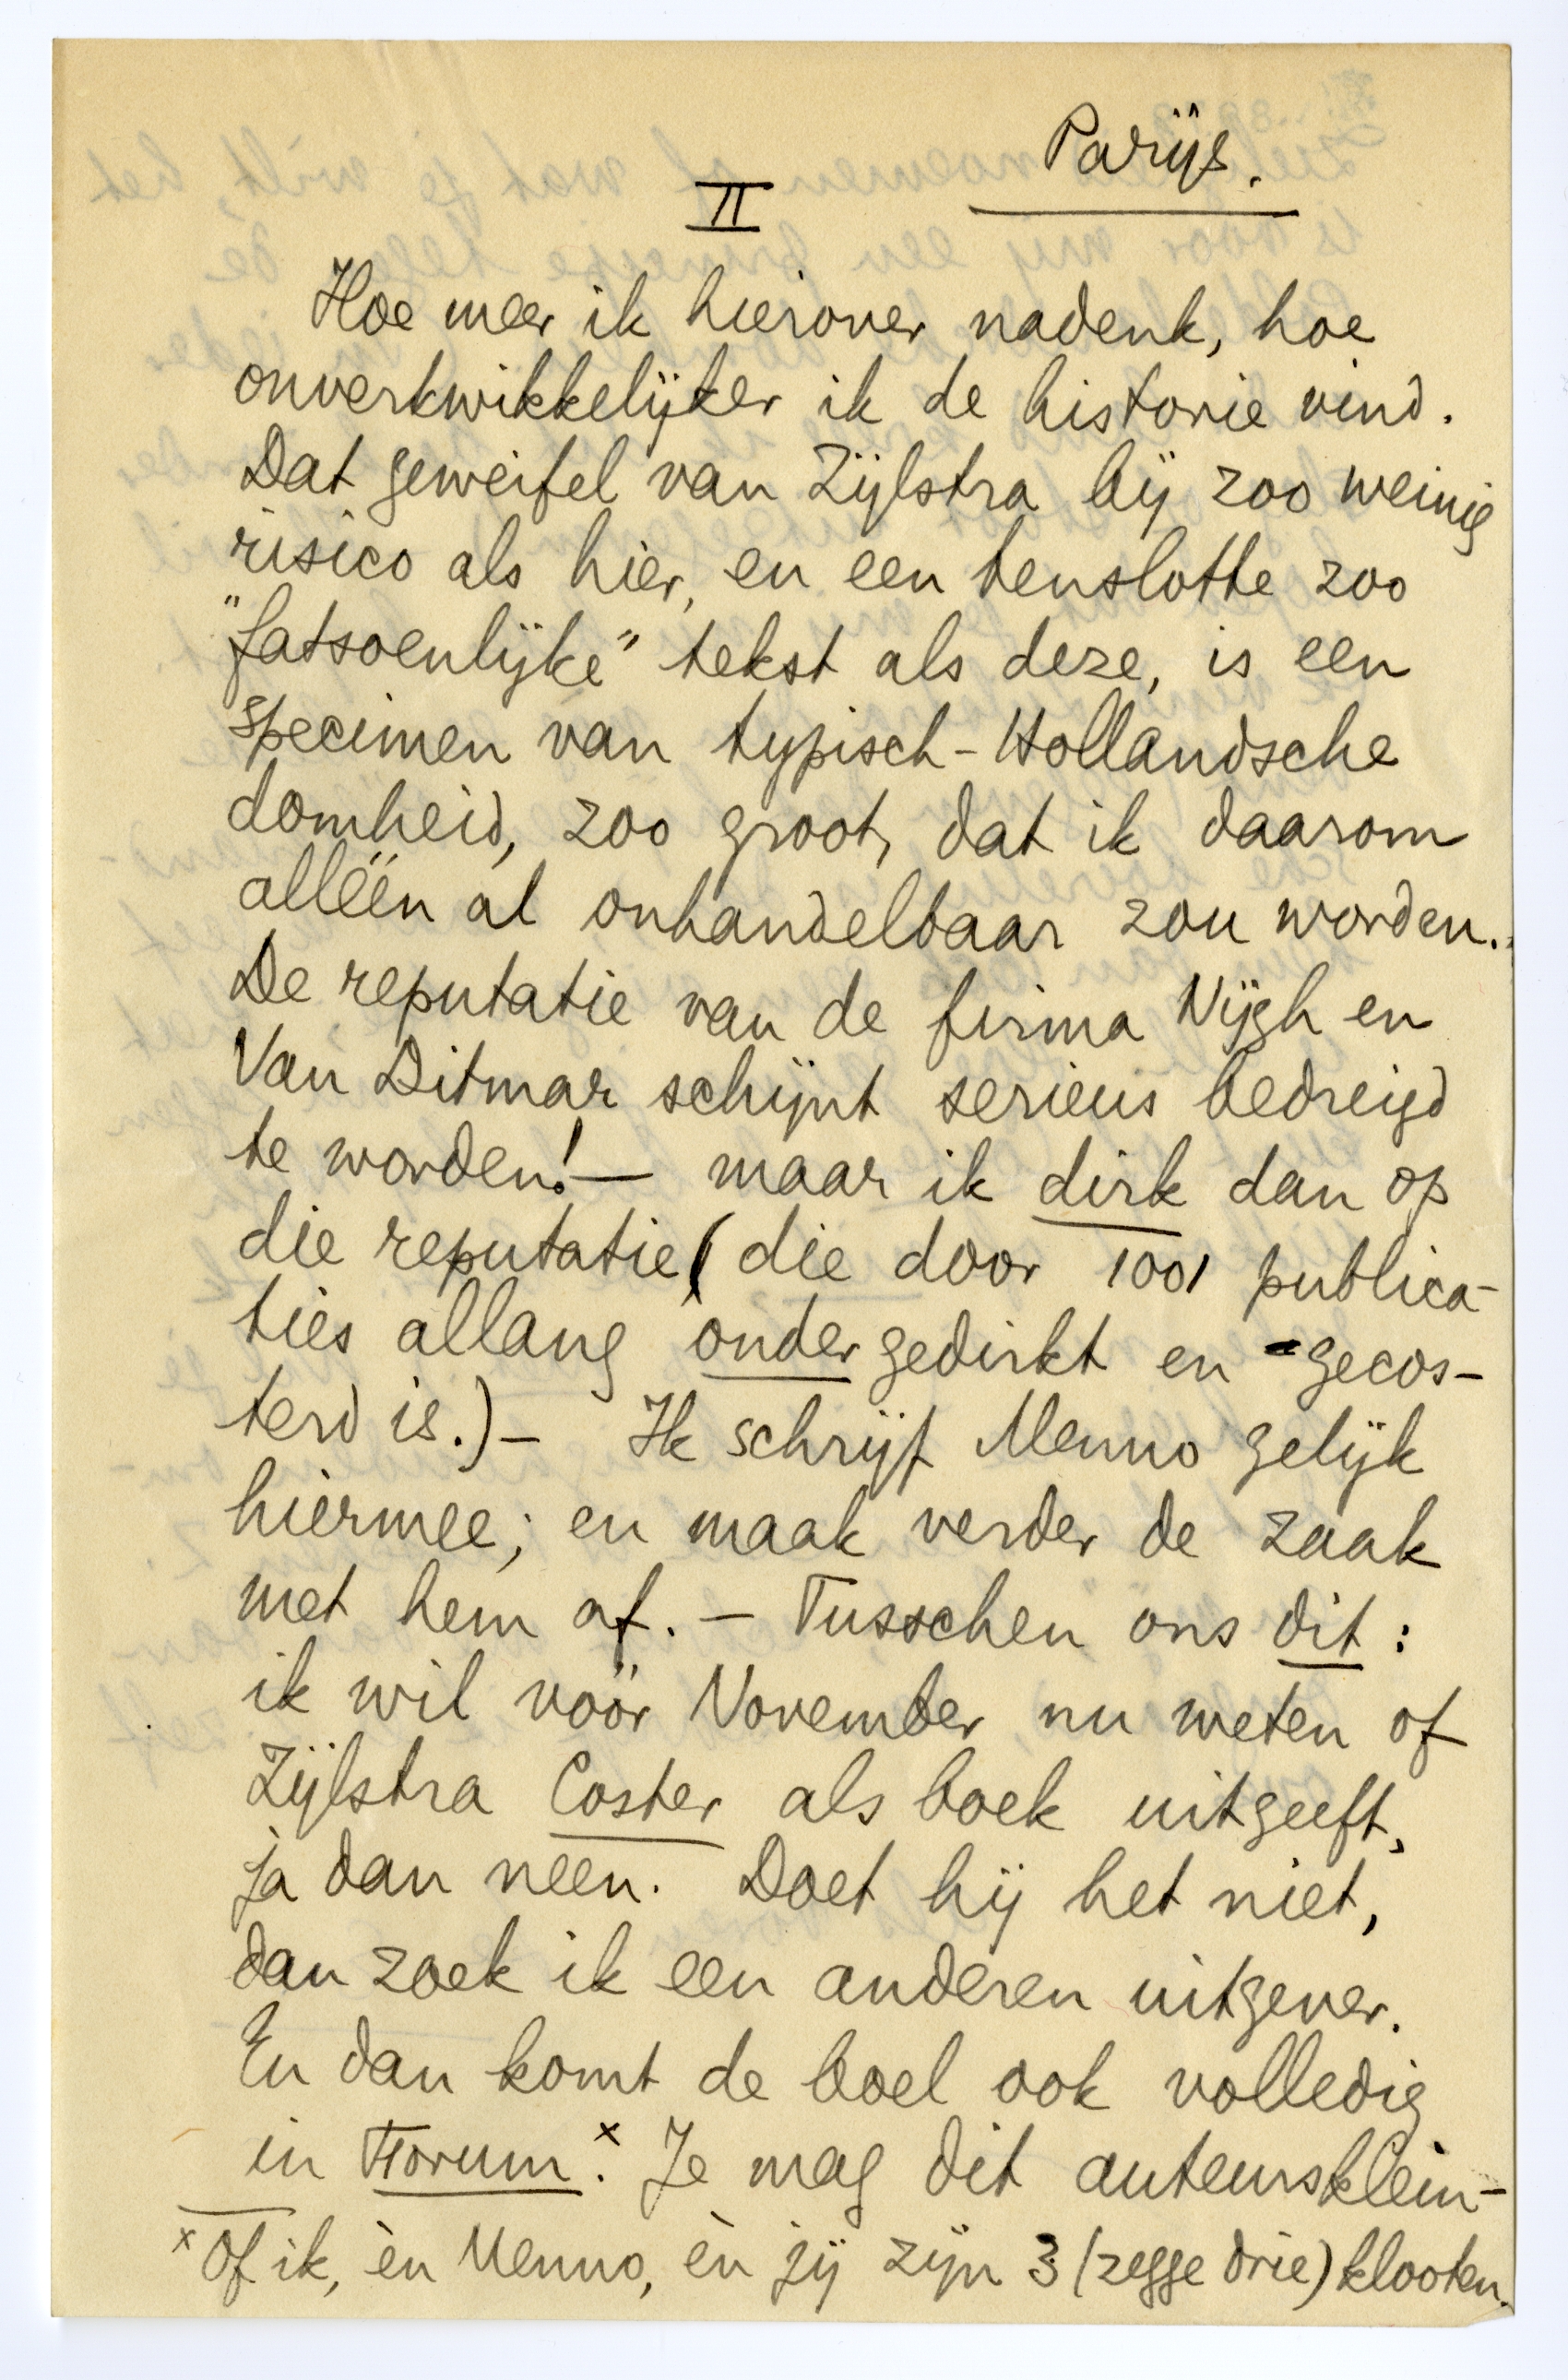 Parijs.
II
Hoe meer ik hierover nadenk, hoe
onverkwikkelijker ik de historie vind.
Dat geweifel van Zijlstra bij zoo weinig
risico als hier, en een tenslotte zoo
"fatsoenlijke" tekst als deze, is een
specimen van typisch-Hollandsche
domheid, zoo groot, dat ik daarom
alléén al onhandelbaar zou worden.
De reputatie van de firma Nijgh en
Van Ditmar schijnt serieus bedreigd
te worden! — maar ik dirk dan op
die reputatie (die door 1001 publica-
ties allang ondergedirkt en -gecos-
terd is.) — Ik schrijf Menno gelijk
hiermee; en maak verder de zaak
met hem af. — Tusschen ons dit:
ik wil vóór November nu weten of
Zijlstra Coster als boek uitgeeft,
ja dan neen. Doet hij het niet,
dan zoek ik een anderen uitgever.
En dan komt de boel ook volledig
in Forum.x Je mag dit auteursklein-
x Of ik, èn Menno, èn jij zijn 3 (zegge drie) klooten.